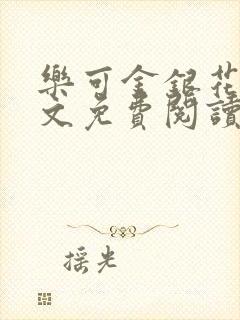 樂可金銀花
文免費閱讀
摇光